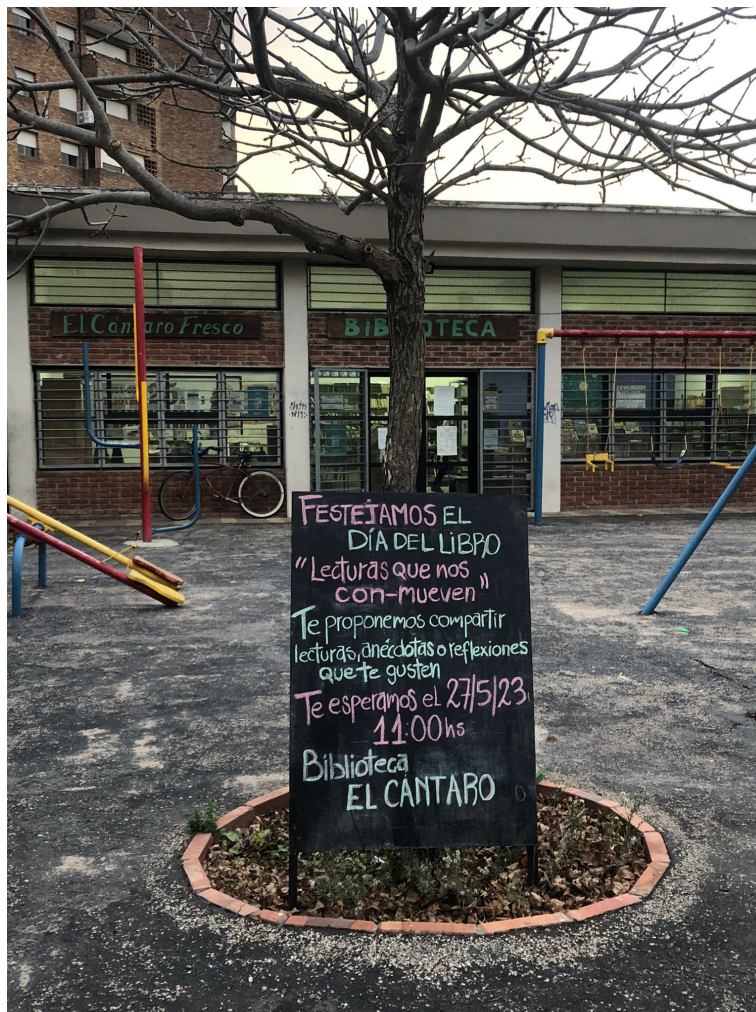 El Cántaro Fresco
BIBLIOTECA
FESTEJAMOS EL
DÍA DEL LIBRO
"Lecturas que nos
con-mueven"
Te proponemos compartir
lecturas, anécdotas o reflexiones
que te gusten
Te esperamos el 27/5/23
11:00hs
Biblioteca
EL CÁNTARO